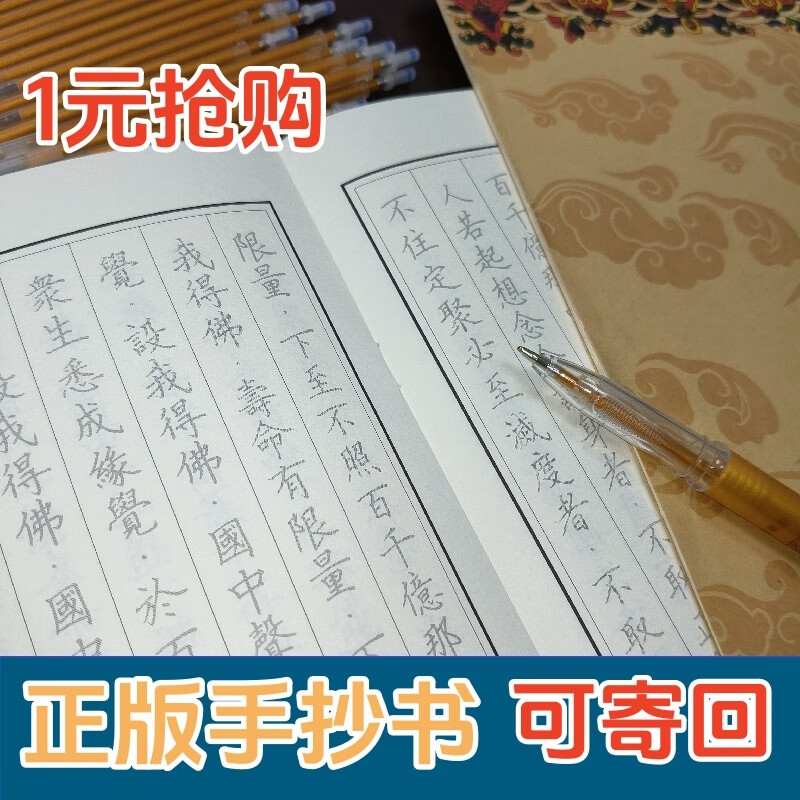 1元抢购
百千億那
人若起想念
者·不取正
不住定聚必至滅度者·不取
限量·下至不照百千億那
我得佛·壽命有限量·
覺·設我得佛·國中聲
衆生悉成緣覺·於百
設我得佛·國中
正版手抄书 可寄回